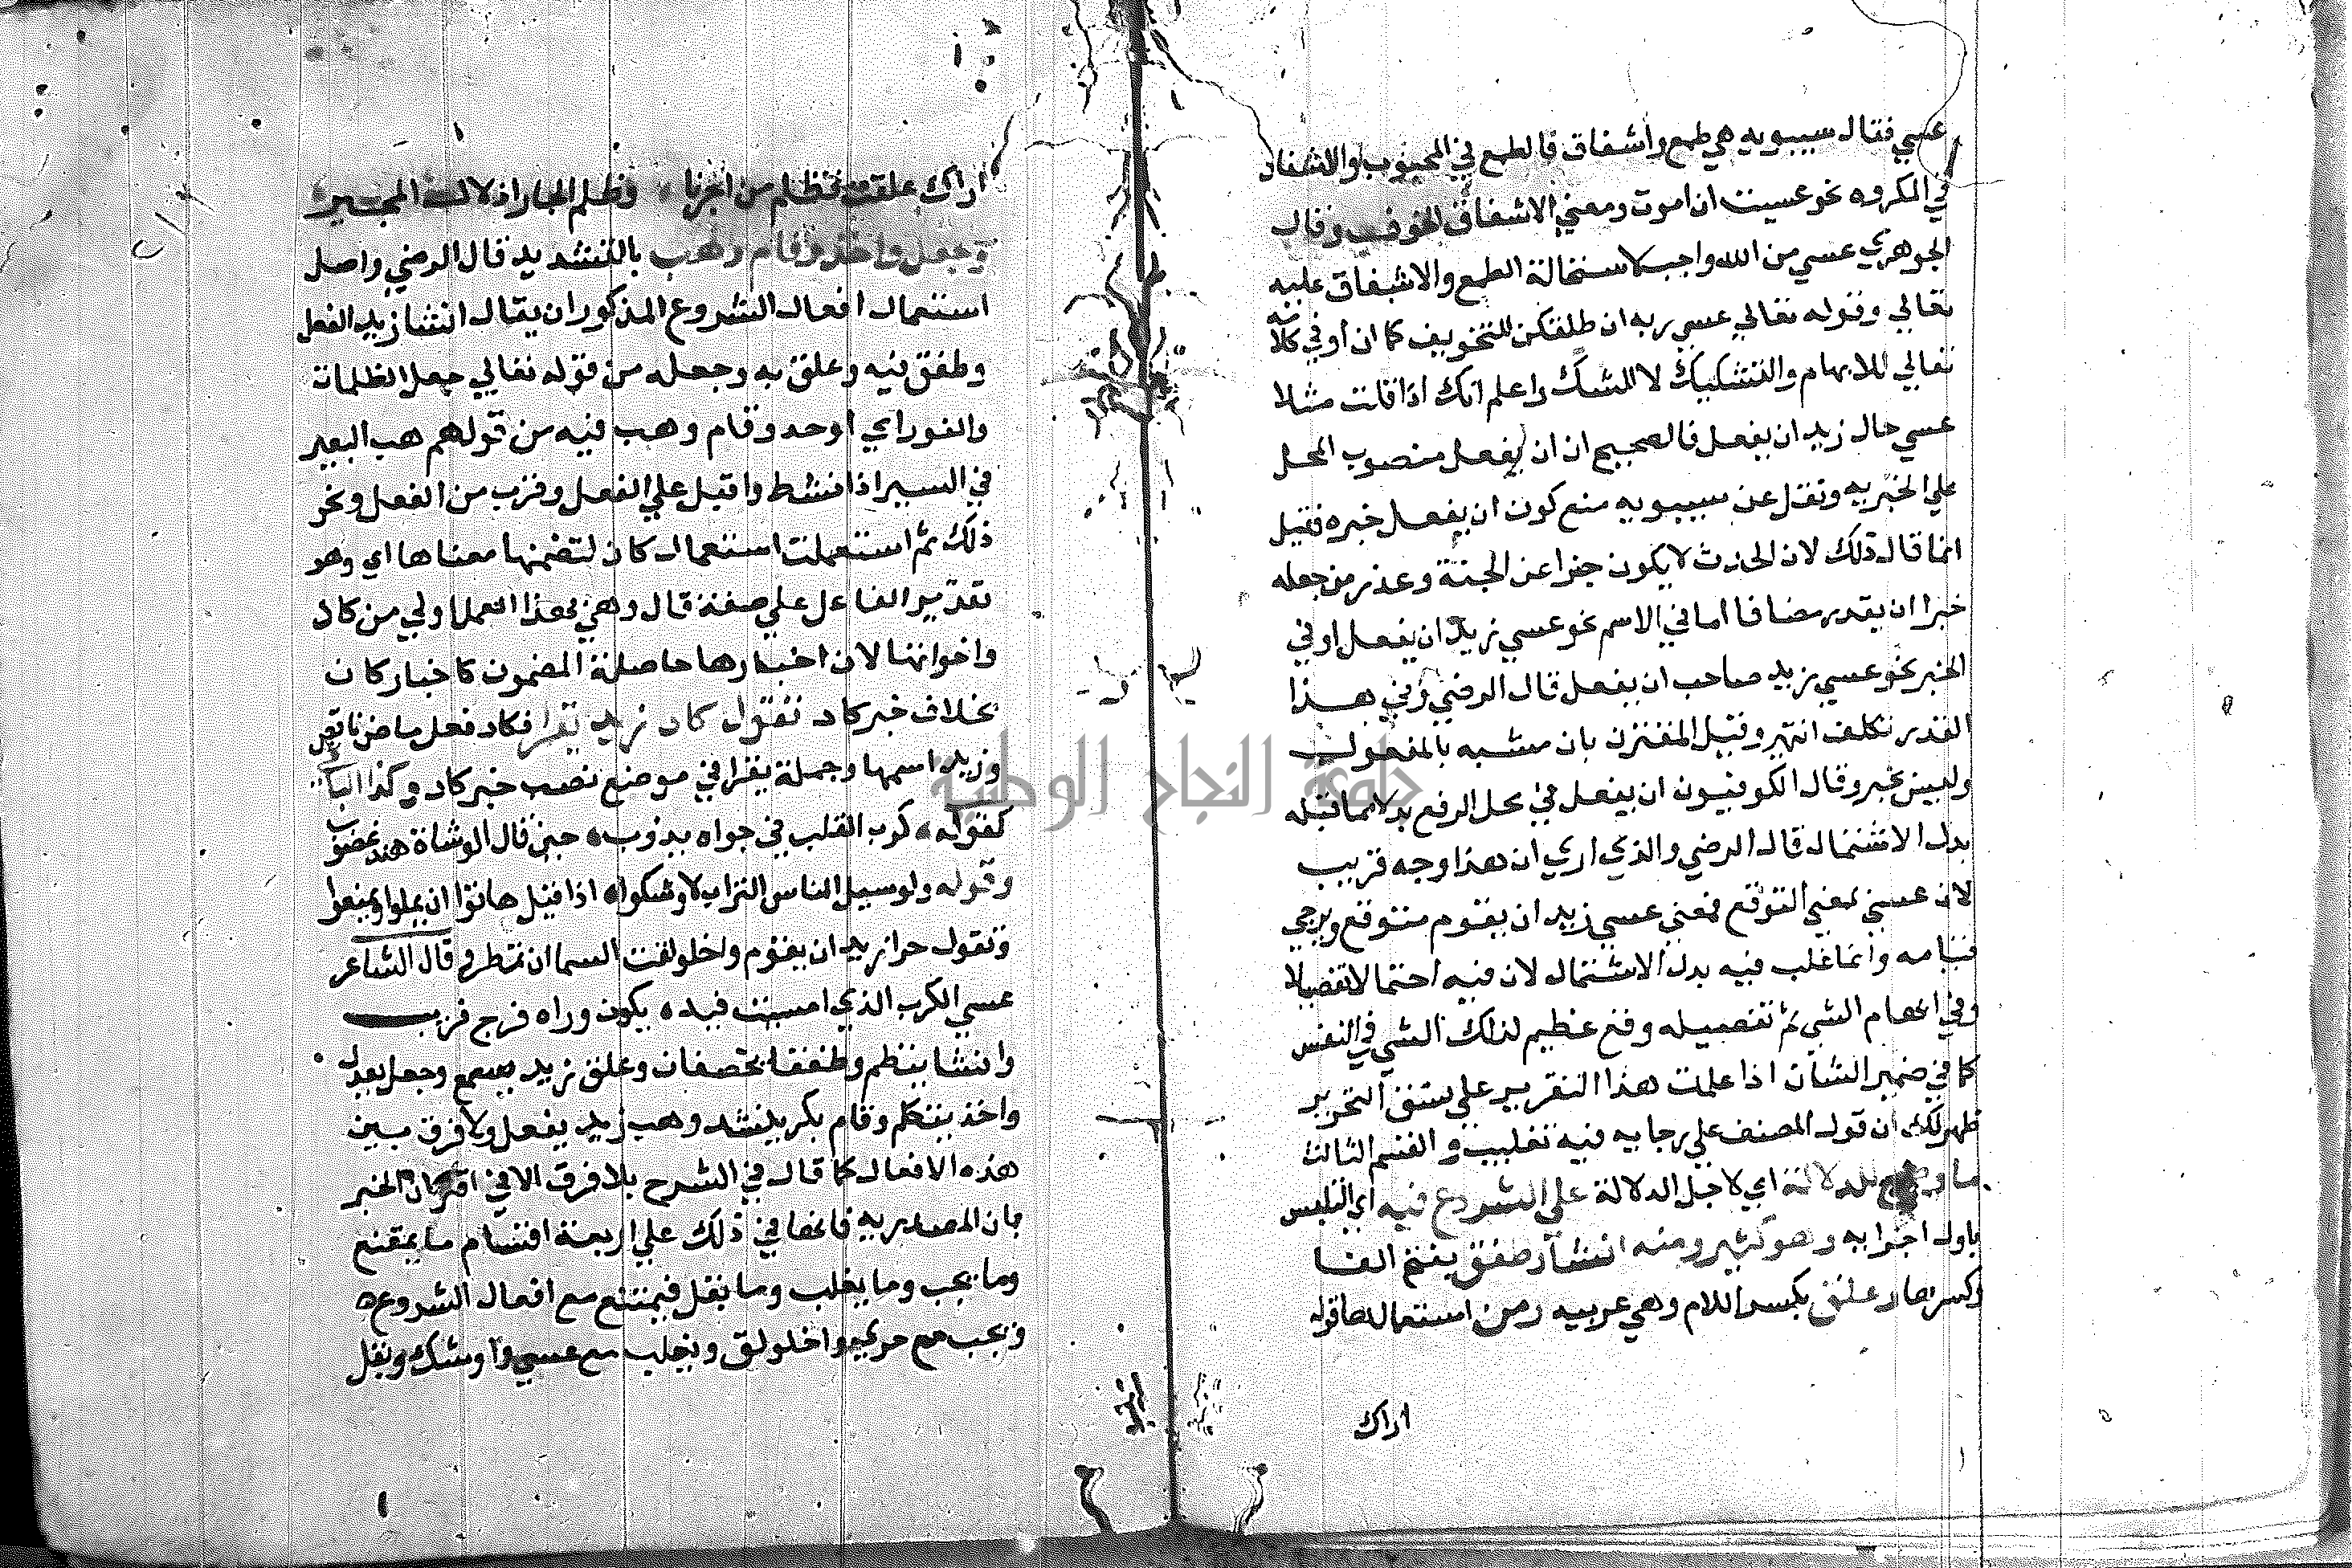 عسي فقال سيبويه هي طمع واشفاق فالطمع في المحبوب والاشفاق
في المكروه نحو عسيت ان اموت ومعني الاشفاق الخوف وقال
الجوهري عسي من الله واجب لاستحالة الطمع والاشفاق عليه
تعالي وقوله تعالي عسي ربه ان طلقكن للتخويف كما ان أو في كلامه
تعالي للابهام والتشكيك لا للشك واعلم انك اذا قلت مثلا
عسي حال زيد ان يفعل فالصحيح ان ان يفعل منصوب المحل
علي الخبريه ونقل عن سيبويه منع كون ان يفعل خبره فقيل
انما قال ذلك لان الحدث لا يكون خبرا عن الجثة وعذر من جعله
خبرا ان يقدر مضافا اما في الاسم نحو عسي زيد ان يفعل او في
الخبر نحو عسي زيد صاحب ان يفعل قال الرضي وفي هذا
القدر تكلف انتهي وقيل المقترن بان مشبه بالمفعول
وليس بخبر وقال الكوفيون ان يفعل في محل الرفع بدلا مما قبله
بدل الاشتمال قال الرضي والذي اري ان هذا وجه قريب
لان عسي بمعني التوقع فمعني عسي زيد ان يقوم متوقع ويرجي
قيامه وانما غلب فيه بدل الاشتمال لان فيه احتمالا تفصيلا
وفي ابهام الشي ثم تفصيله وقع عظيم لذلك الشي في النفس
كما في ضمير الشان اذا علمت هذا التقرير علي سنن التحرير
ظهر لك ان قول المصنف علي رجا به فيه تغليب و القسم الثالث
ما وضع للدلالة اي لاجل الدلالة علي الشروع فيه اي التلبس
باول اجزا به وهو كثير ومنه انشأ وطفق بفتح الفا
وكسرها وعلق بكسر اللام وهي عربيه ومن استعمالها قوله
اراك
اراك علقت تظلم من اجرنا وظلم الجار اذلال المجير
وجعل واخذ وقام وهب بالتشديد قال الرضي واصل
استعمال افعال الشروع المذكور ان يقال انشا زيد الفعل
وطفق فيه وعلق به وجعله من قوله تعالي جعل الظلمات
والنور اي اوجد وقام وهب فيه من قولهم هب البعير
في السير اذا نشط واقبل علي الفعل وقرب من الفعل ونحو
ذلك ثم استعملت استعمال كان لتضمنها معناها اي وهو
تقدير الفاعل علي صفة قال وهي بهذا العمل اولي من كاد
واخواتها لان اخبارها حاصلة المضمون كاخبار كان
بخلاف خبر كاد تقول كاد زيد يقرا فكاد فعل ماض ناقص
وزيد اسمها وجملة يقرا في موضع نصب خبر كاد وكذا الباقي
كقوله كرب القلب في جواه يذوب حين قال الوشاة هند غضوب
وقوله ولو سيل الناس التراب لاوشكوا اذا قيل هاتوا ان يملوا ويمنعوا
وتقول حرا زيد ان يقوم واخلولقت السما ان تمطر و قال الشاعر
عسي الكرب الذي امسيت فيه يكون وراه فرج قريب
وانشا ينظم وطفقا يخصفان وعلق زيد يسمع وجعل يعدل
واخذ يتكلم وقام بكر ينشد وهب زيد يفعل ولا فرق بين
هذه الافعال كما قال في الشرح بلا فرق الا في اقتران الخبر
بان المصدريه فانها في ذلك علي اربعة اقسام ما يمتنع
وما يجب وما يغلب وما يقل فيمتنع مع افعال الشروع
ويجب مع حري واخلولق ويغلب مع عسي واوشك ويقل
جامعة النجاح الوطنية